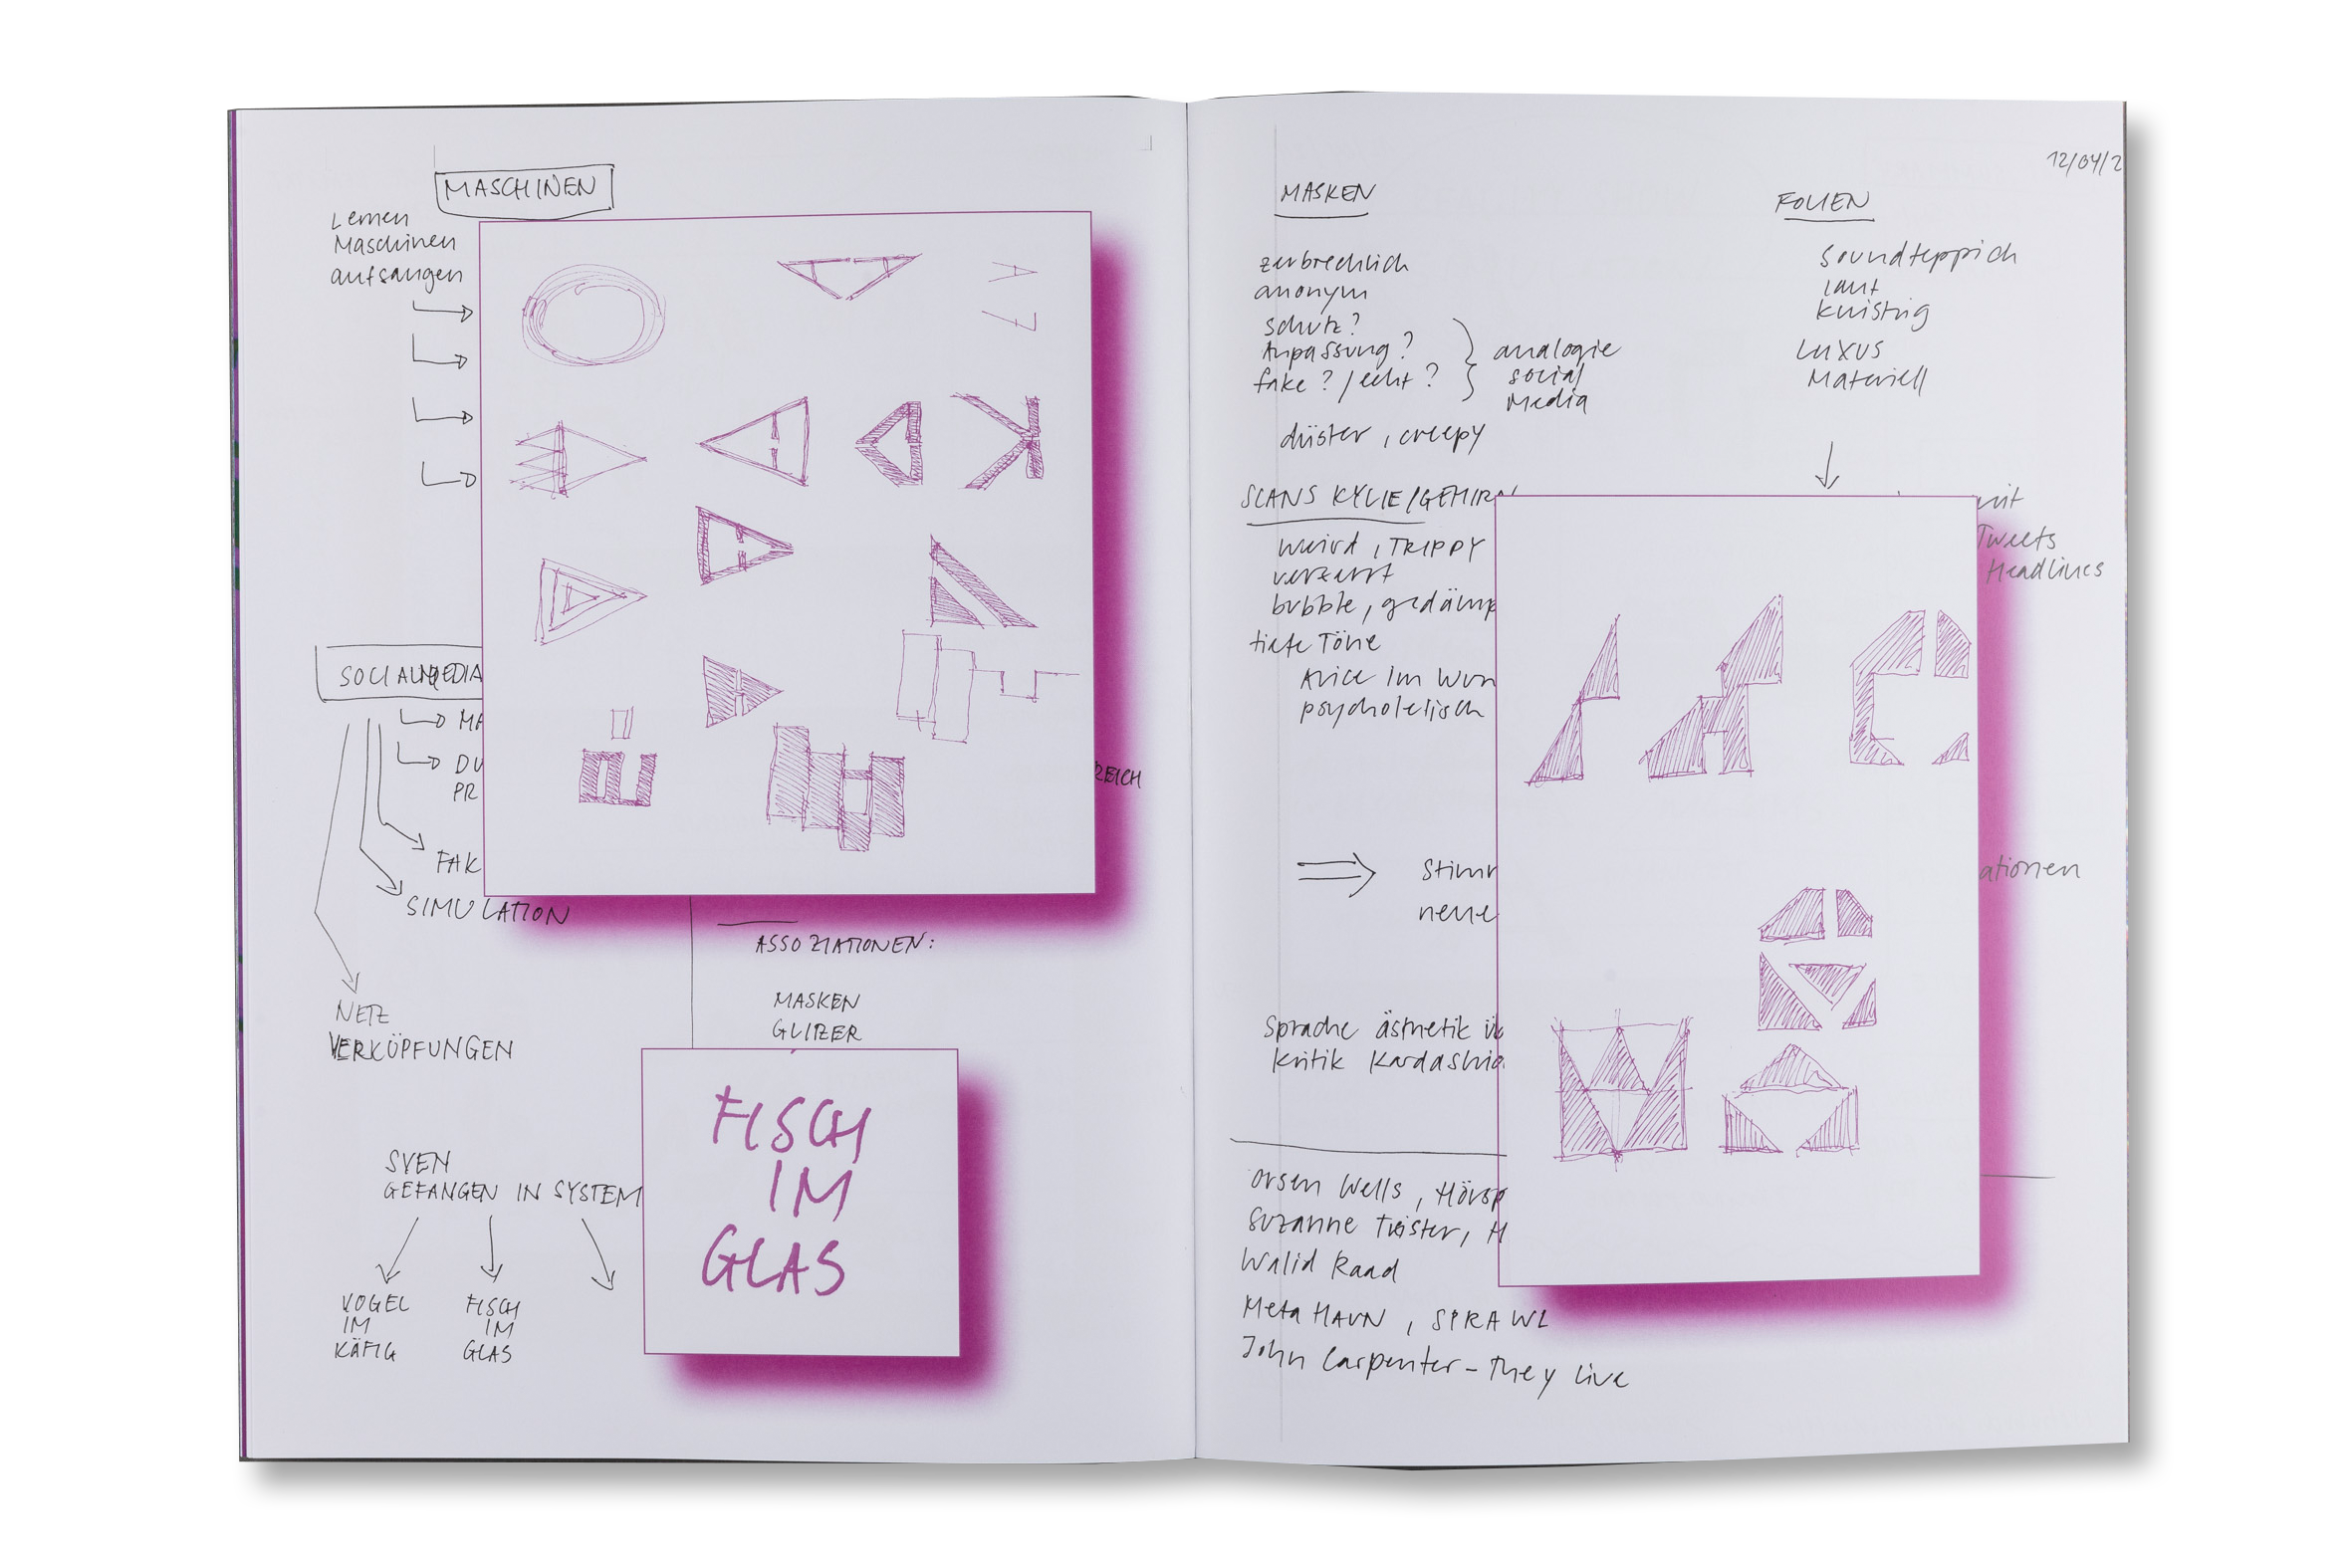 MASCHINEN
Lernen
Maschinen
aufsaugen
SOCIALMEDIA
MA
DU
PR
REICH
FAK
SIMULATION
ASSOZIATIONEN:
MASKEN
GLITZER
NETZ
VERKÖPFUNGEN
SVEN
GEFANGEN IN SYSTEM
VOGEL
IM
KÄFIG
FISCH
IM
GLAS
FISCH
IM
GLAS
12/04/2
MASKEN
zerbrechlich
anonym
Schutz?
Anpassung?
fake? / echt?
analogie
social
Media
düster, creepy
FOLIEN
Soundteppich
laut
knistrig
Luxus
Materiell
mit
Tweets
Headlines
SCANS KYLIE/GEHIRN
Weird, TRIPPY
verzerrt
bubble, gedämp
tiefe Töne
Alice im Wun
psycholetisch
Stimm
neue
ationen
Sprache ästhetik üb
Kritik Kardashia
Orsen Wells, Hörsp
Suzanne Treister, H
Walid Raad
Meta HAVN, SPRAWL
John Carpenter - They Live